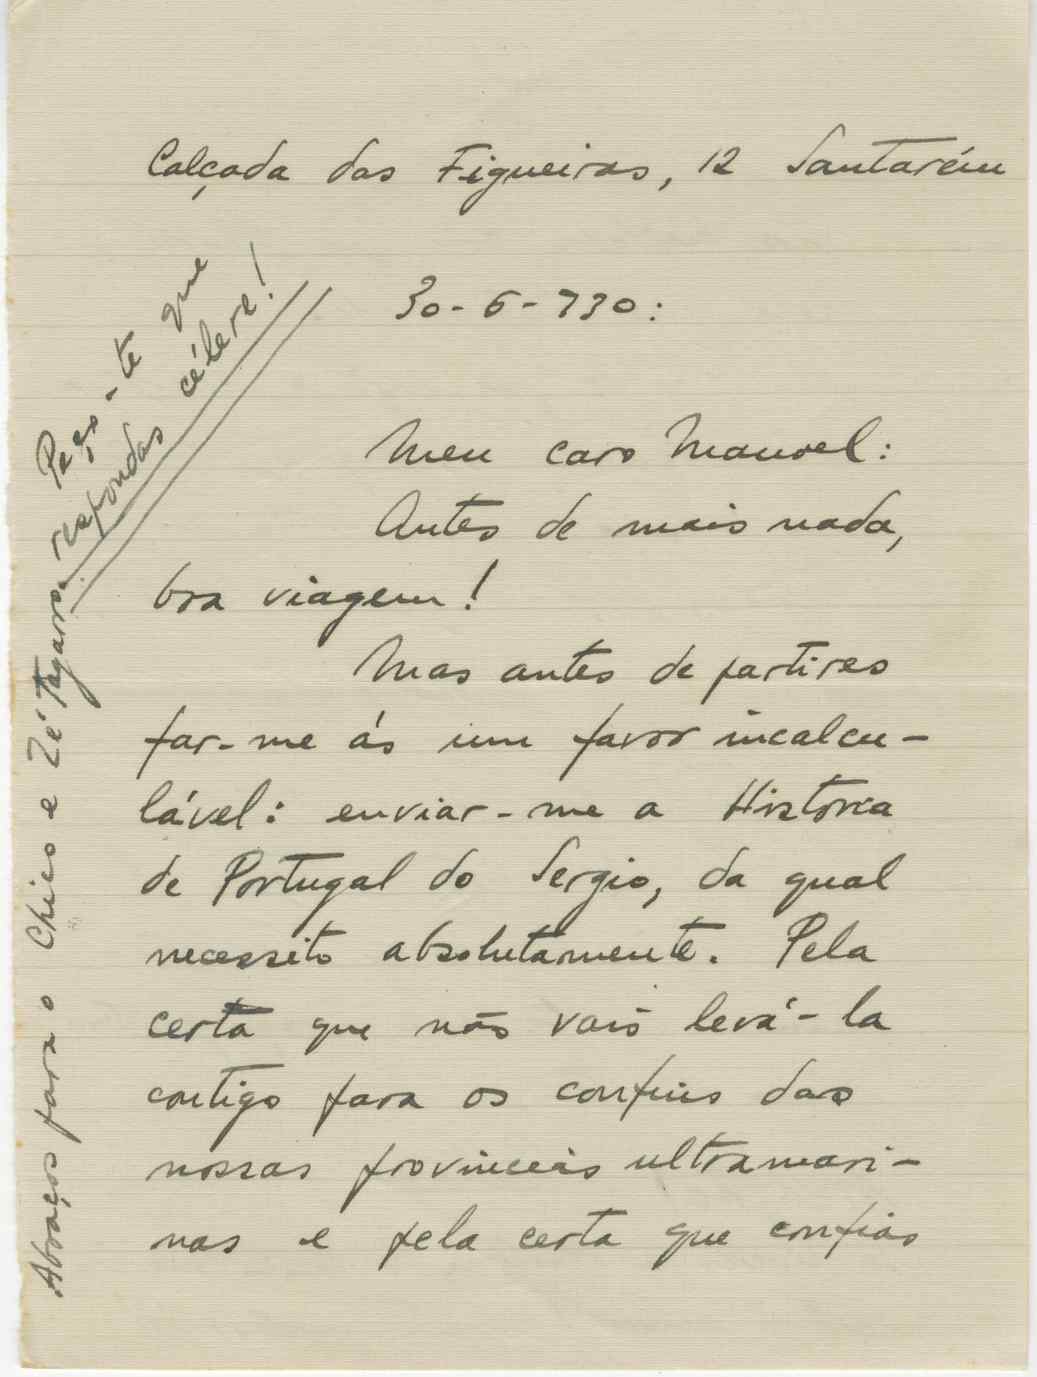 Calçada das Figueiras, 12 Santarém
30-6-930:
Meu caro Manoel:
Antes de mais nada,
boa viagem!
Mas antes de partires
far-me ás um favor incalcu-
lável: enviar-me a História
de Portugal do Sergio, da qual
necessito absolutamente. Pela
certa que não vais levá-la
contigo para os confins das
nossas províncias ultramari-
nas e pela certa que confias
Peço-te que
respondas célere!
Abraços para o Chico e Zé Tagarro